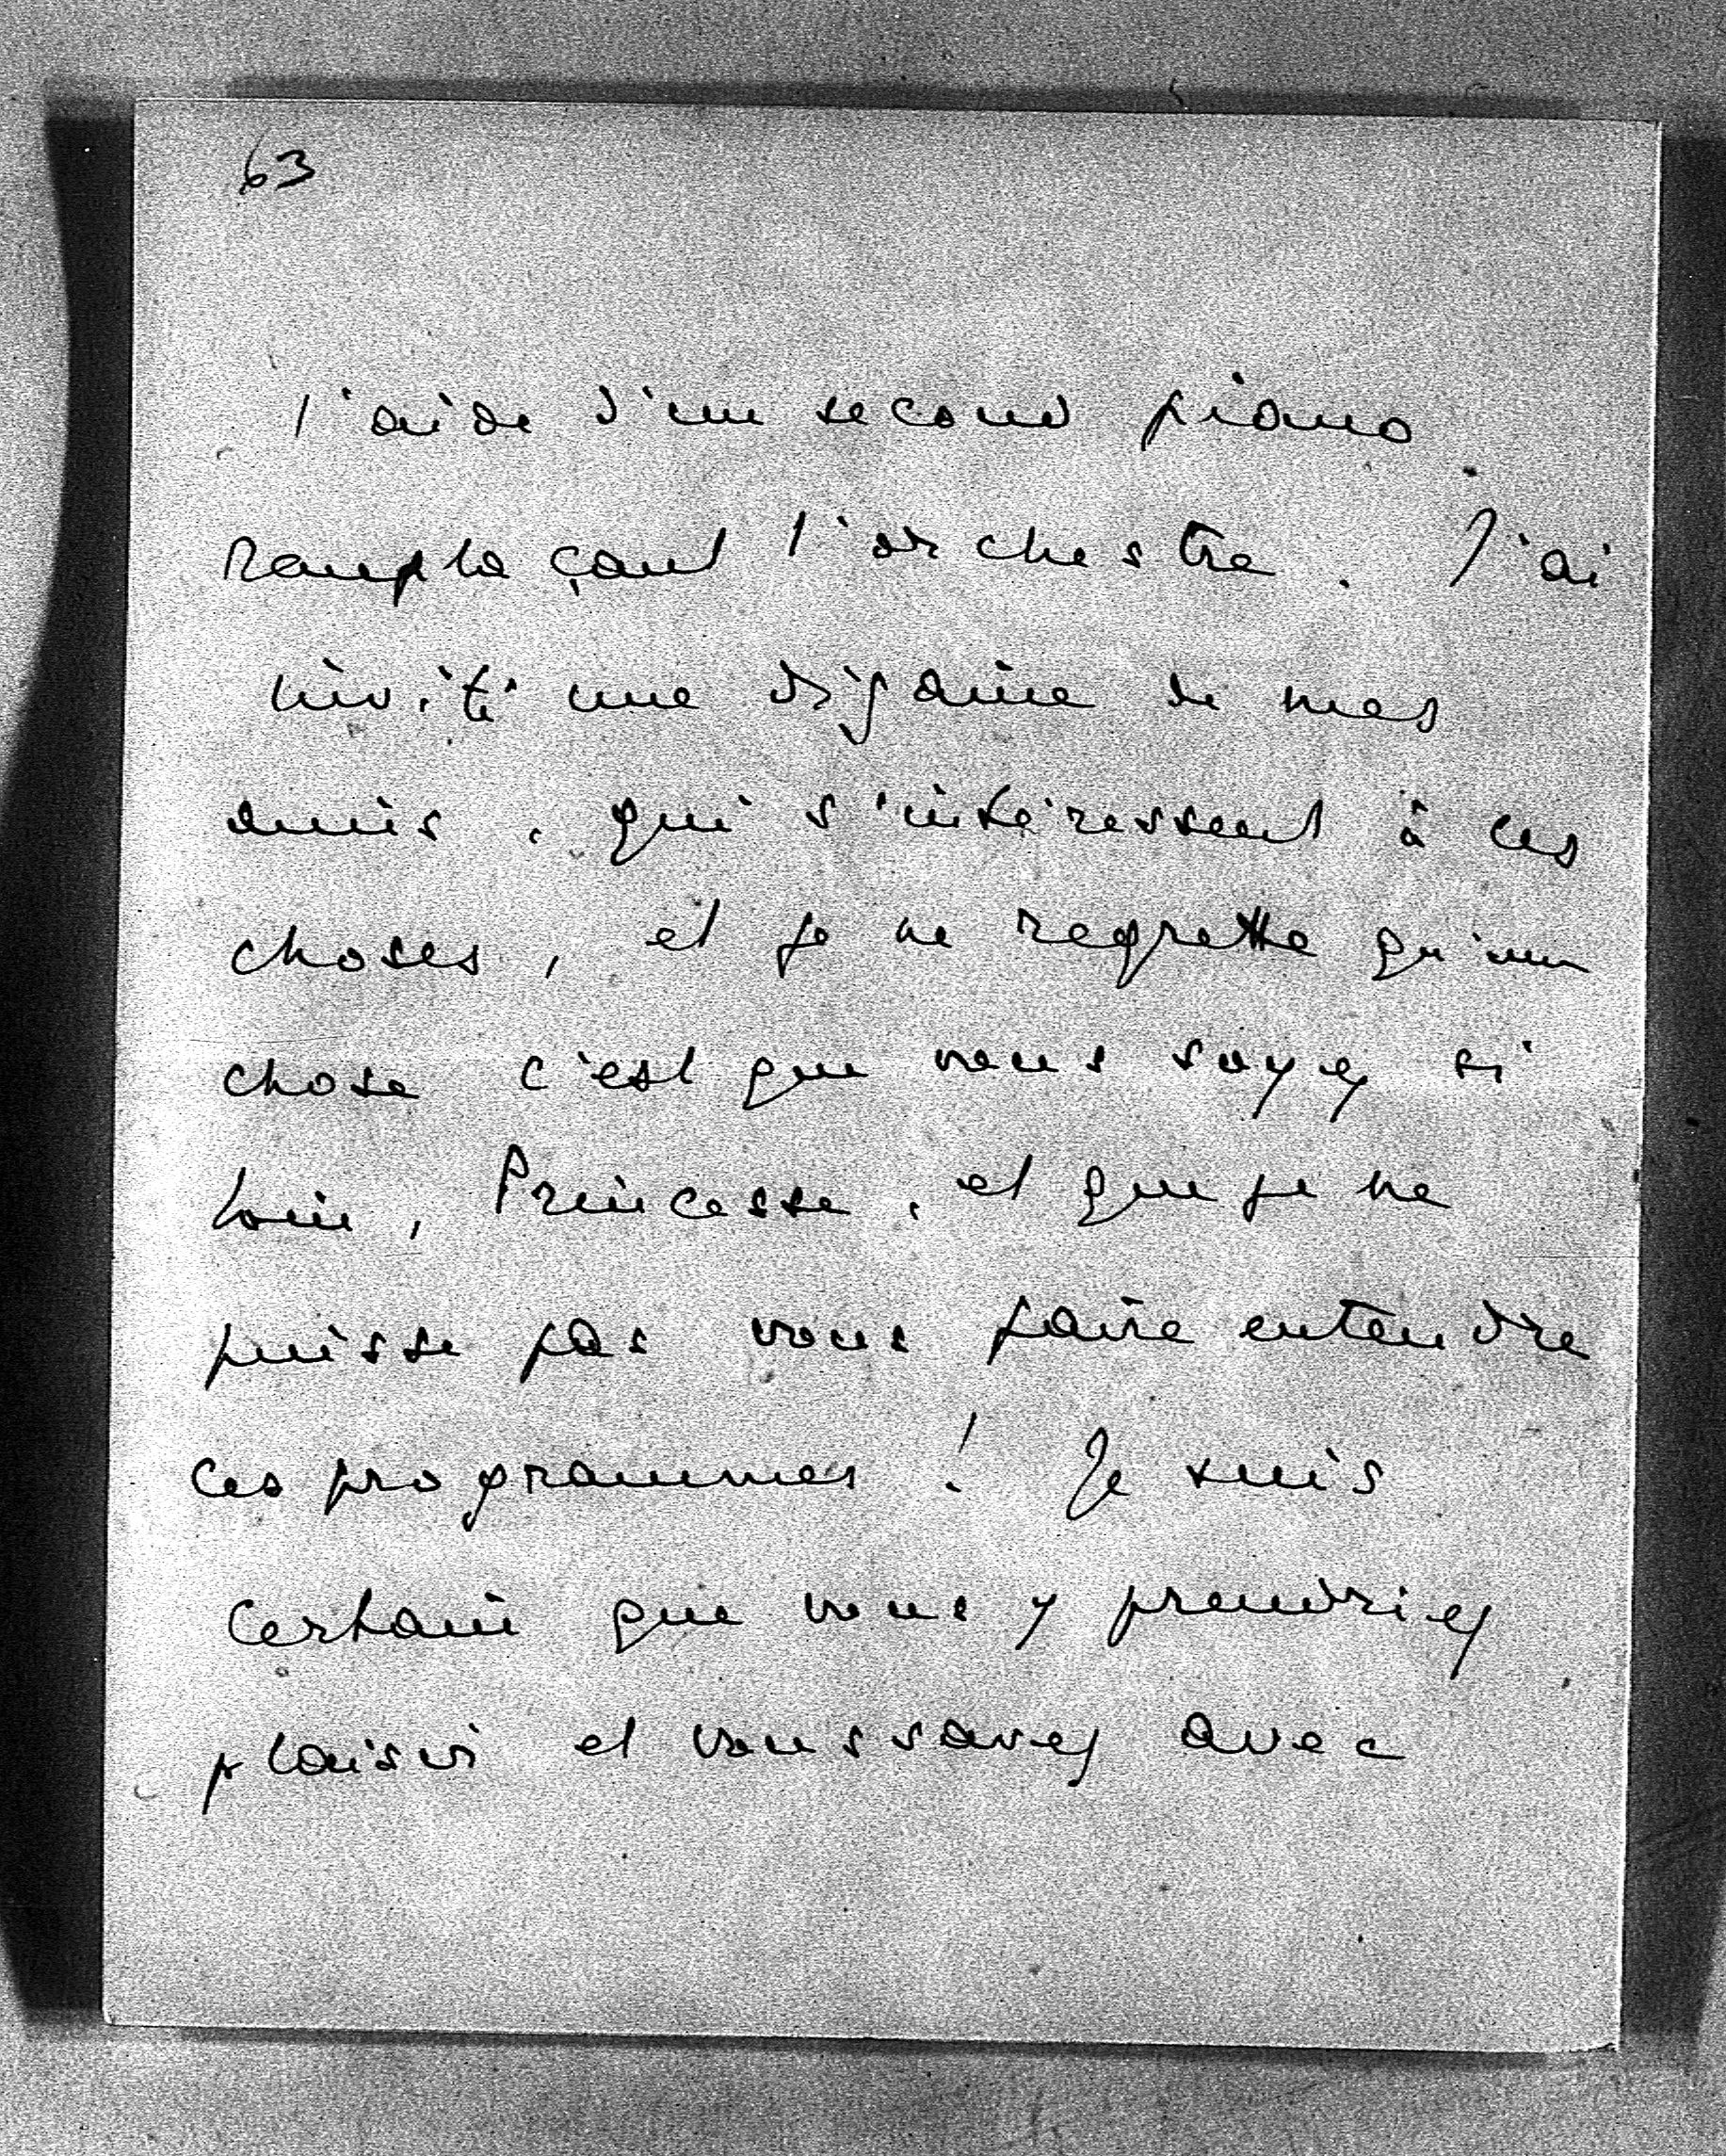 63
l'aide d'un second piano
remplaçant l'orchestre. J'ai
invité une dizaine de mes
amis, qui s'intéressent à ces
choses, et je ne regrette qu'une
chose c'est que vous soyez si
loin, Princesse, et que je ne
puisse pas vous faire entendre
ces programmes ! Je suis
certain que vous y prendriez
plaisir et vous savez avec